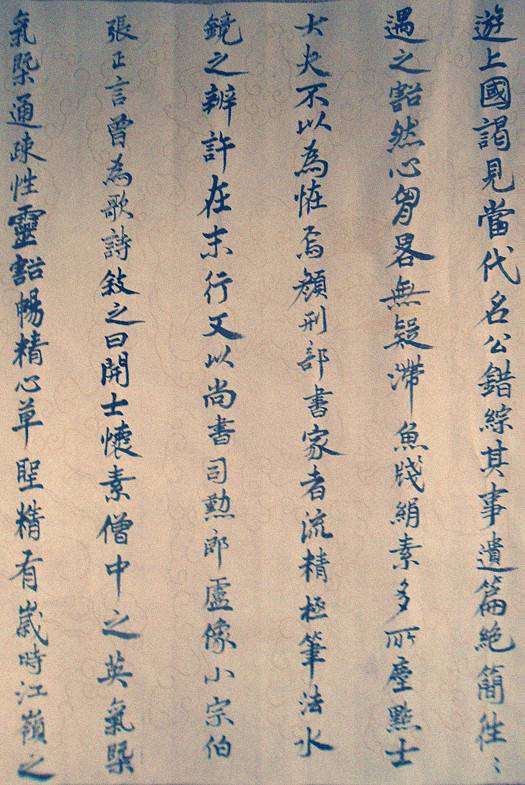 遊上國謁見當代名公錯綜其事遺篇絕簡往〻
遇之豁然心胷畧無疑滯魚牋絹素多所塵點士
大夫不以為恠焉顏刑部書家者流精極筆法水
鏡之辨許在末行又以尚書司勲郎盧像小宗伯
張正言曾為歌詩敘之曰開士懷素僧中之英氣槩
氣槩通疎性靈豁暢精心草聖精有歲時江嶺之